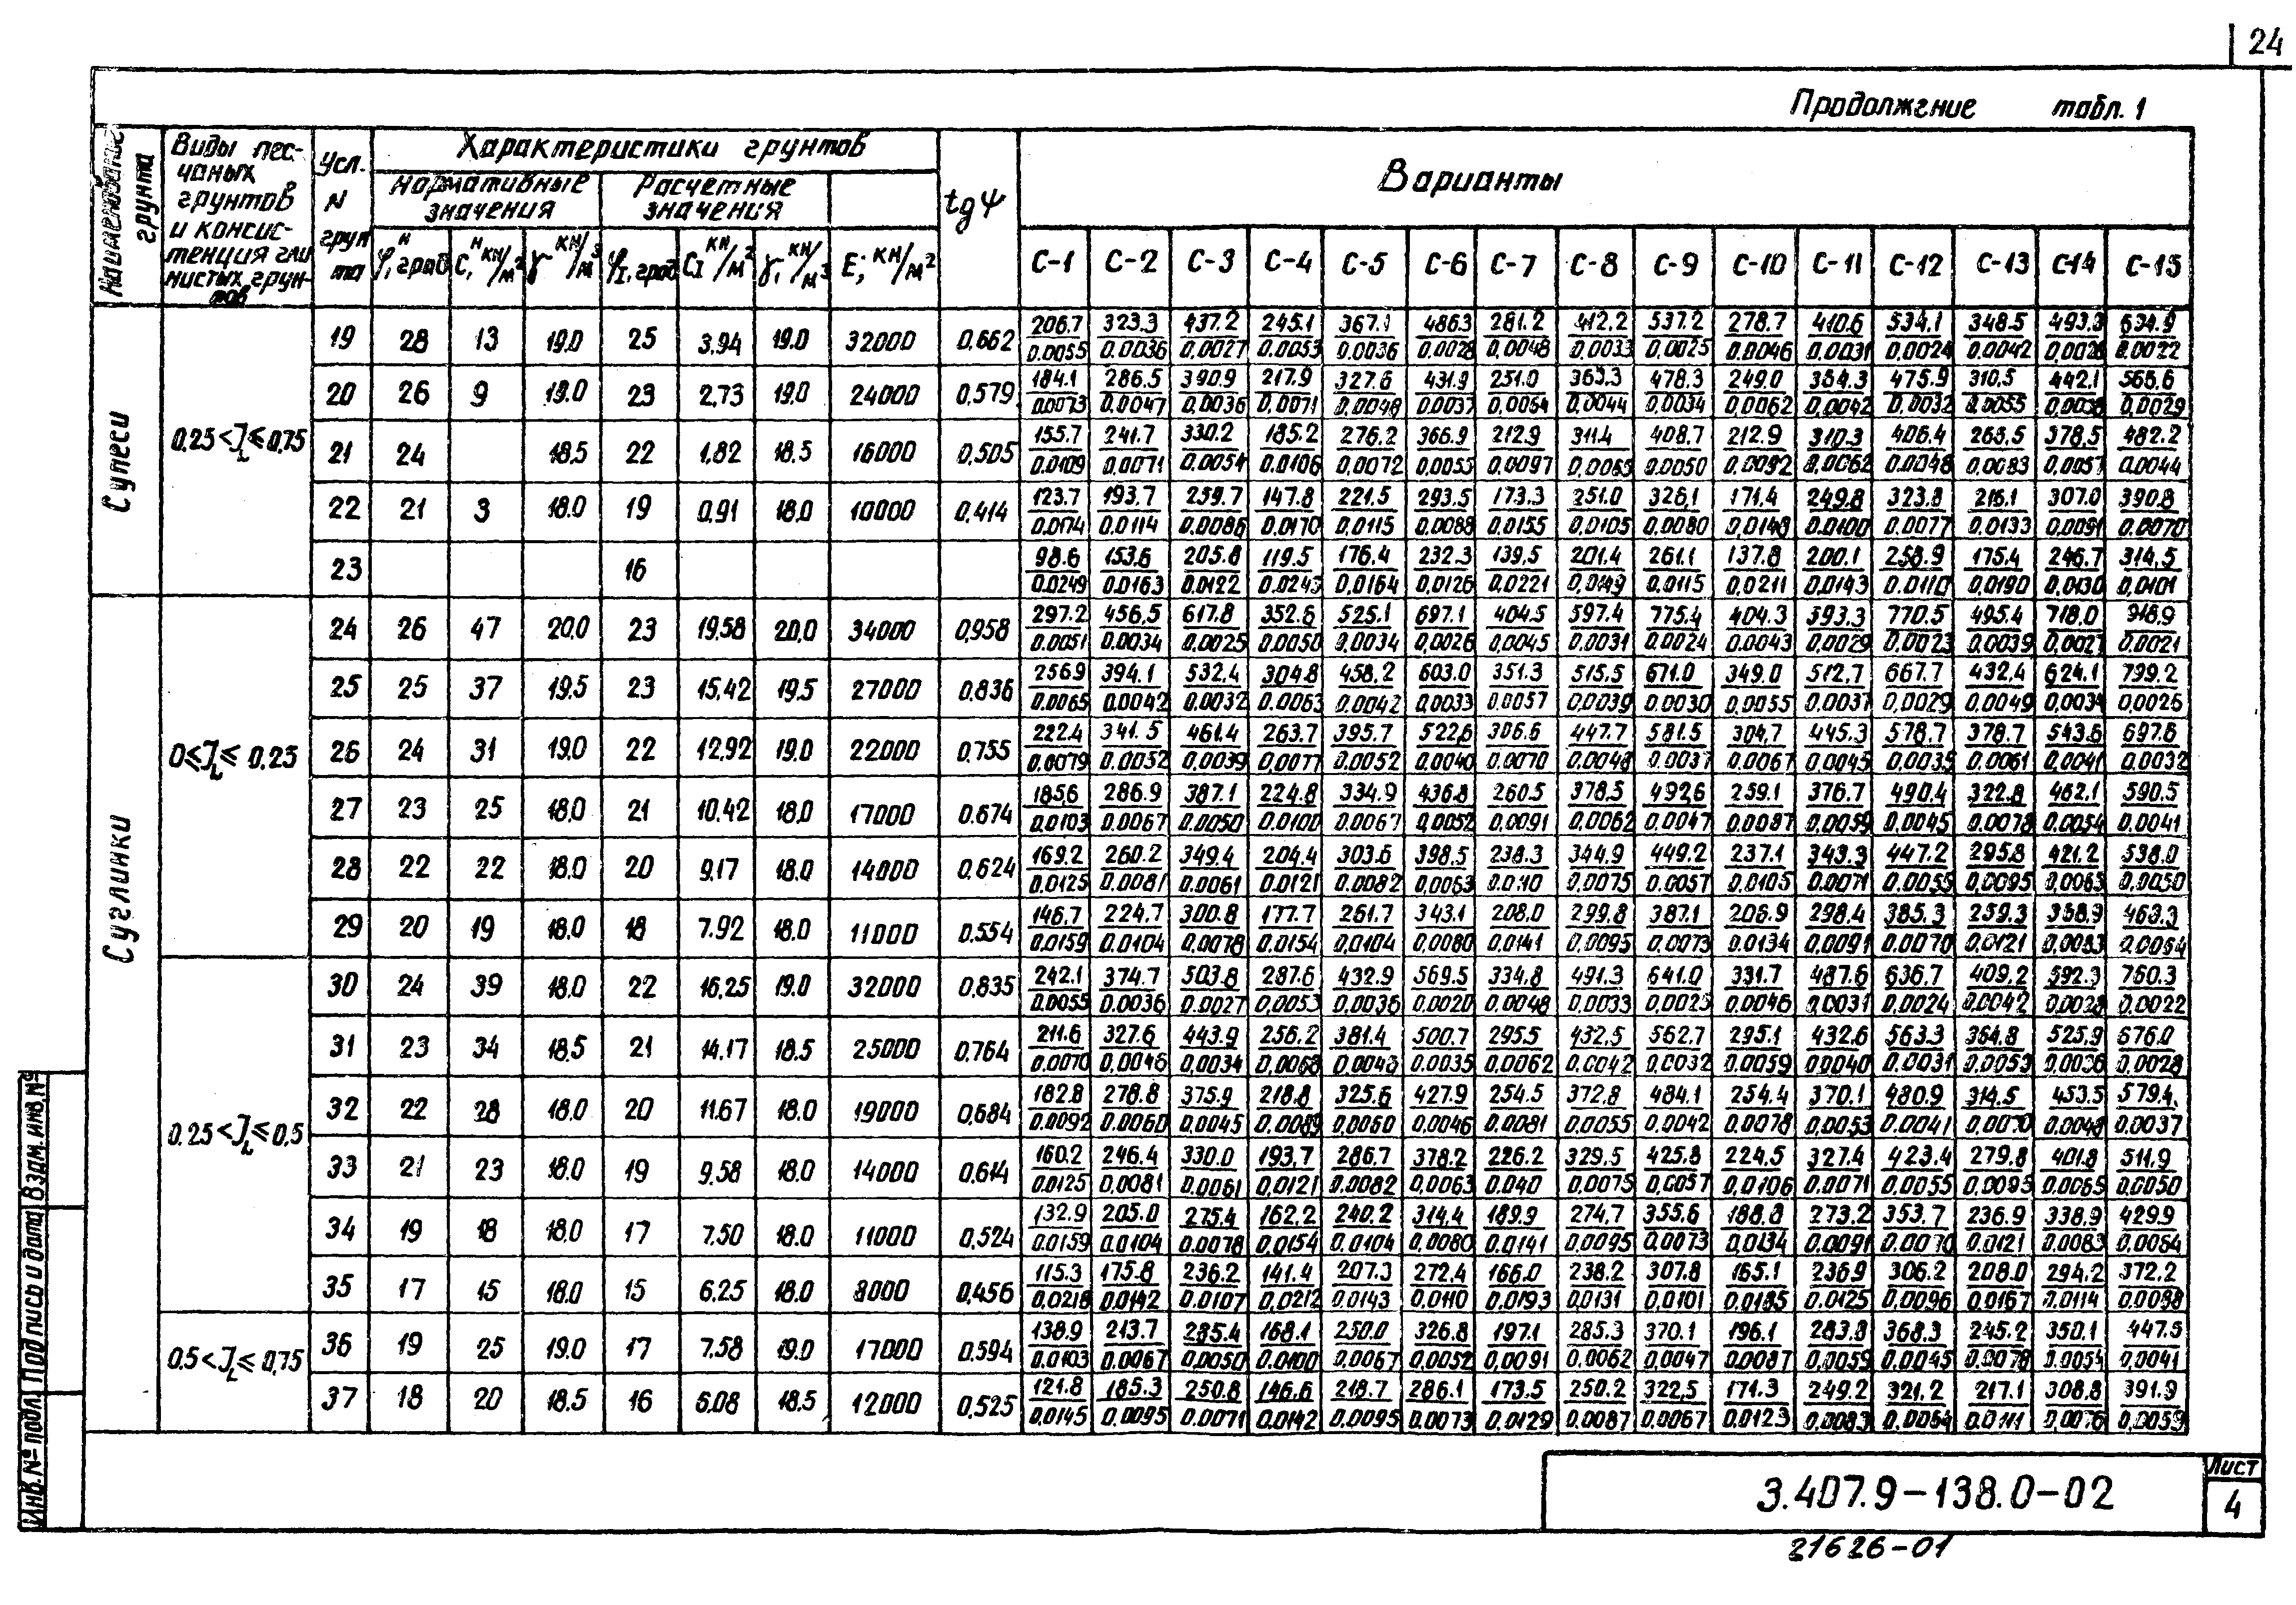 24
Продолжение табл. 1
Наименование грунта
Виды песчаных грунтов и консистенция глинистых грунтов
Усл. N грунта
Характеристики грунтов
Нормативные значения
Расчетные значения
φᴴ, град Cᴴ, кН/м² γ кН/м³ φI, град CI кН/м² γI, кН/м³ E; кН/м²
tgψ
Варианты
С-1 С-2 С-3 С-4 С-5 С-6 С-7 С-8 С-9 С-10 С-11 С-12 С-13 С-14 С-15
Супеси
0,25<JL≤0,75
19 28 13 19.0 25 3.94 19.0 32000 0,662 206.7 323.3 437.2 245.1 367.1 486.3 281.2 412.2 537.2 278.7 410.6 534.1 348.5 493.3 634.9
0.0055 0.0036 0.0027 0.0053 0.0036 0.0028 0.0048 0.0033 0.0025 0.0046 0.0031 0.0024 0.0042 0.0028 0.0022
20 26 9 19.0 23 2.73 19.0 24000 0,579 184.1 286.5 390.9 217.9 327.6 431.9 251.0 363.3 478.3 249.0 364.3 475.9 310.5 442.1 565.6
0.0073 0.0047 0.0036 0.0071 0.0048 0.0037 0.0064 0.0044 0.0034 0.0062 0.0042 0.0032 0.0055 0.0038 0.0029
21 24 18.5 22 1.82 18.5 16000 0,505 155.7 241.7 330.2 185.2 276.2 366.9 212.9 311.4 408.7 212.9 310.3 406.4 265.5 378.5 482.2
0.0109 0.0071 0.0054 0.0106 0.0072 0.0055 0.0097 0.0065 0.0050 0.0092 0.0062 0.0048 0.0083 0.0057 0.0044
22 21 3 18.0 19 0.91 18.0 10000 0,414 123.7 193.7 259.7 147.8 221.5 293.5 173.3 251.0 326.1 171.4 249.8 323.8 216.1 307.0 390.8
0.0174 0.0114 0.0086 0.0170 0.0115 0.0088 0.0155 0.0105 0.0080 0.0148 0.0100 0.0077 0.0133 0.0091 0.0070
23 16 98.6 153.6 205.8 119.5 176.4 232.3 139.5 201.4 261.1 137.8 200.1 258.9 175.4 246.7 314.5
0.0249 0.0163 0.0122 0.0243 0.0164 0.0126 0.0221 0.0149 0.0115 0.0211 0.0143 0.0110 0.0190 0.0130 0.0101
Суглинки
0≤JL≤0.25
24 26 47 20.0 23 19.58 20.0 34000 0,958 297.2 456.5 617.8 352.6 525.1 697.1 404.5 597.4 775.4 404.3 593.3 770.5 495.4 718.0 918.9
0.0051 0.0034 0.0025 0.0050 0.0034 0.0026 0.0045 0.0031 0.0024 0.0043 0.0029 0.0023 0.0039 0.0027 0.0021
25 25 37 19.5 23 15.42 19.5 27000 0,836 256.9 394.1 532.4 304.8 458.2 603.0 351.3 515.5 671.0 349.0 512.7 667.7 432.4 624.1 799.2
0.0065 0.0042 0.0032 0.0063 0.0042 0.0033 0.0057 0.0039 0.0030 0.0055 0.0037 0.0029 0.0049 0.0034 0.0026
26 24 31 19.0 22 12.92 19.0 22000 0,755 222.4 341.5 461.4 263.7 395.7 522.6 306.6 447.7 581.5 304.7 445.3 578.7 378.7 543.6 697.6
0.0079 0.0052 0.0039 0.0077 0.0052 0.0040 0.0070 0.0048 0.0037 0.0067 0.0045 0.0035 0.0061 0.0041 0.0032
27 23 25 18.0 21 10.42 18.0 17000 0,674 185.6 286.9 387.1 224.8 334.9 436.8 260.5 378.5 492.6 259.1 376.7 490.4 322.8 462.1 590.5
0.0103 0.0067 0.0050 0.0100 0.0067 0.0052 0.0091 0.0062 0.0047 0.0087 0.0059 0.0045 0.0078 0.0054 0.0041
28 22 22 18.0 20 9.17 18.0 14000 0,624 169.2 260.2 349.4 204.4 303.6 398.5 238.3 344.9 449.2 237.1 343.3 447.2 295.8 421.2 538.0
0.0125 0.0081 0.0061 0.0121 0.0082 0.0063 0.0110 0.0075 0.0057 0.0105 0.0071 0.0055 0.0095 0.0065 0.0050
29 20 19 18.0 18 7.92 18.0 11000 0.554 146.7 224.7 300.8 177.7 261.7 343.1 208.0 299.8 387.1 206.9 298.4 385.3 259.3 368.9 463.3
0.0159 0.0104 0.0078 0.0154 0.0104 0.0080 0.0141 0.0095 0.0073 0.0134 0.0091 0.0070 0.0121 0.0083 0.0064
0.25<JL≤0,5
30 24 39 18.0 22 16.25 19.0 32000 0,835 242.1 374.7 503.8 287.6 432.9 569.5 334.8 491.3 641.0 331.7 487.6 636.7 409.2 592.3 760.3
0.0055 0.0036 0.0027 0.0053 0.0036 0.0020 0.0048 0.0033 0.0025 0.0046 0.0031 0.0024 0.0042 0.0028 0.0022
31 23 34 18.5 21 14.17 18.5 25000 0.764 211.6 327.6 443.9 256.2 381.4 500.7 295.5 432.5 562.7 295.1 432.6 563.3 364.8 525.9 676.0
0.0070 0.0046 0.0034 0.0068 0.0046 0.0035 0.0062 0.0042 0.0032 0.0059 0.0040 0.0031 0.0053 0.0036 0.0028
32 22 28 18.0 20 11.67 18.0 19000 0,684 182.8 278.8 375.9 218.8 325.6 427.9 254.5 372.8 484.1 254.4 370.1 480.9 314.5 453.5 579.4
0.0092 0.0060 0.0045 0.0089 0.0060 0.0046 0.0081 0.0055 0.0042 0.0078 0.0053 0.0041 0.0070 0.0048 0.0037
33 21 23 18.0 19 9.58 18.0 14000 0,614 160.2 246.4 330.0 193.7 286.7 378.2 226.2 329.5 425.8 224.5 327.4 423.4 279.8 401.8 511.9
0.0125 0.0081 0.0061 0.0121 0.0082 0.0063 0.040 0.0075 0.0057 0.0106 0.0071 0.0055 0.0095 0.0065 0.0050
34 19 18 18.0 17 7.50 18.0 11000 0,524 132.9 205.0 275.4 162.2 240.2 314.4 189.9 274.7 355.6 188.8 273.2 353.7 236.9 338.9 429.9
0.0159 0.0104 0.0078 0.0154 0.0104 0.0080 0.0141 0.0095 0.0073 0.0134 0.0091 0.0070 0.0121 0.0083 0.0064
35 17 15 18.0 15 6.25 18.0 8000 0,456 115.3 175.8 236.2 141.4 207.3 272.4 166.0 238.2 307.8 165.1 236.9 306.2 208.0 294.2 372.2
0.0218 0.0142 0.0107 0.0212 0.0143 0.0110 0.0193 0.0131 0.0101 0.0185 0.0125 0.0096 0.0167 0.0114 0.0088
0.5<JL≤0,75
36 19 25 19.0 17 7.58 19.0 17000 0.594 138.9 213.7 285.4 168.1 250.0 326.8 197.1 285.3 370.1 196.1 283.8 368.3 245.2 350.1 447.5
0.0103 0.0067 0.0050 0.0100 0.0067 0.0052 0.0091 0.0062 0.0047 0.0087 0.0059 0.0045 0.0078 0.0054 0.0041
37 18 20 18.5 16 6.08 18.5 12000 0,525 121.8 185.3 250.8 146.6 218.7 286.1 173.5 250.2 322.5 171.3 249.2 321.2 217.1 308.8 391.9
0.0145 0.0095 0.0071 0.0142 0.0095 0.0073 0.0129 0.0087 0.0067 0.0123 0.0083 0.0064 0.0111 0.0076 0.0059
Инв. № подл. Подпись и дата Взам. инв. №
3.407.9-138.0-02
Лист
4
21626-01